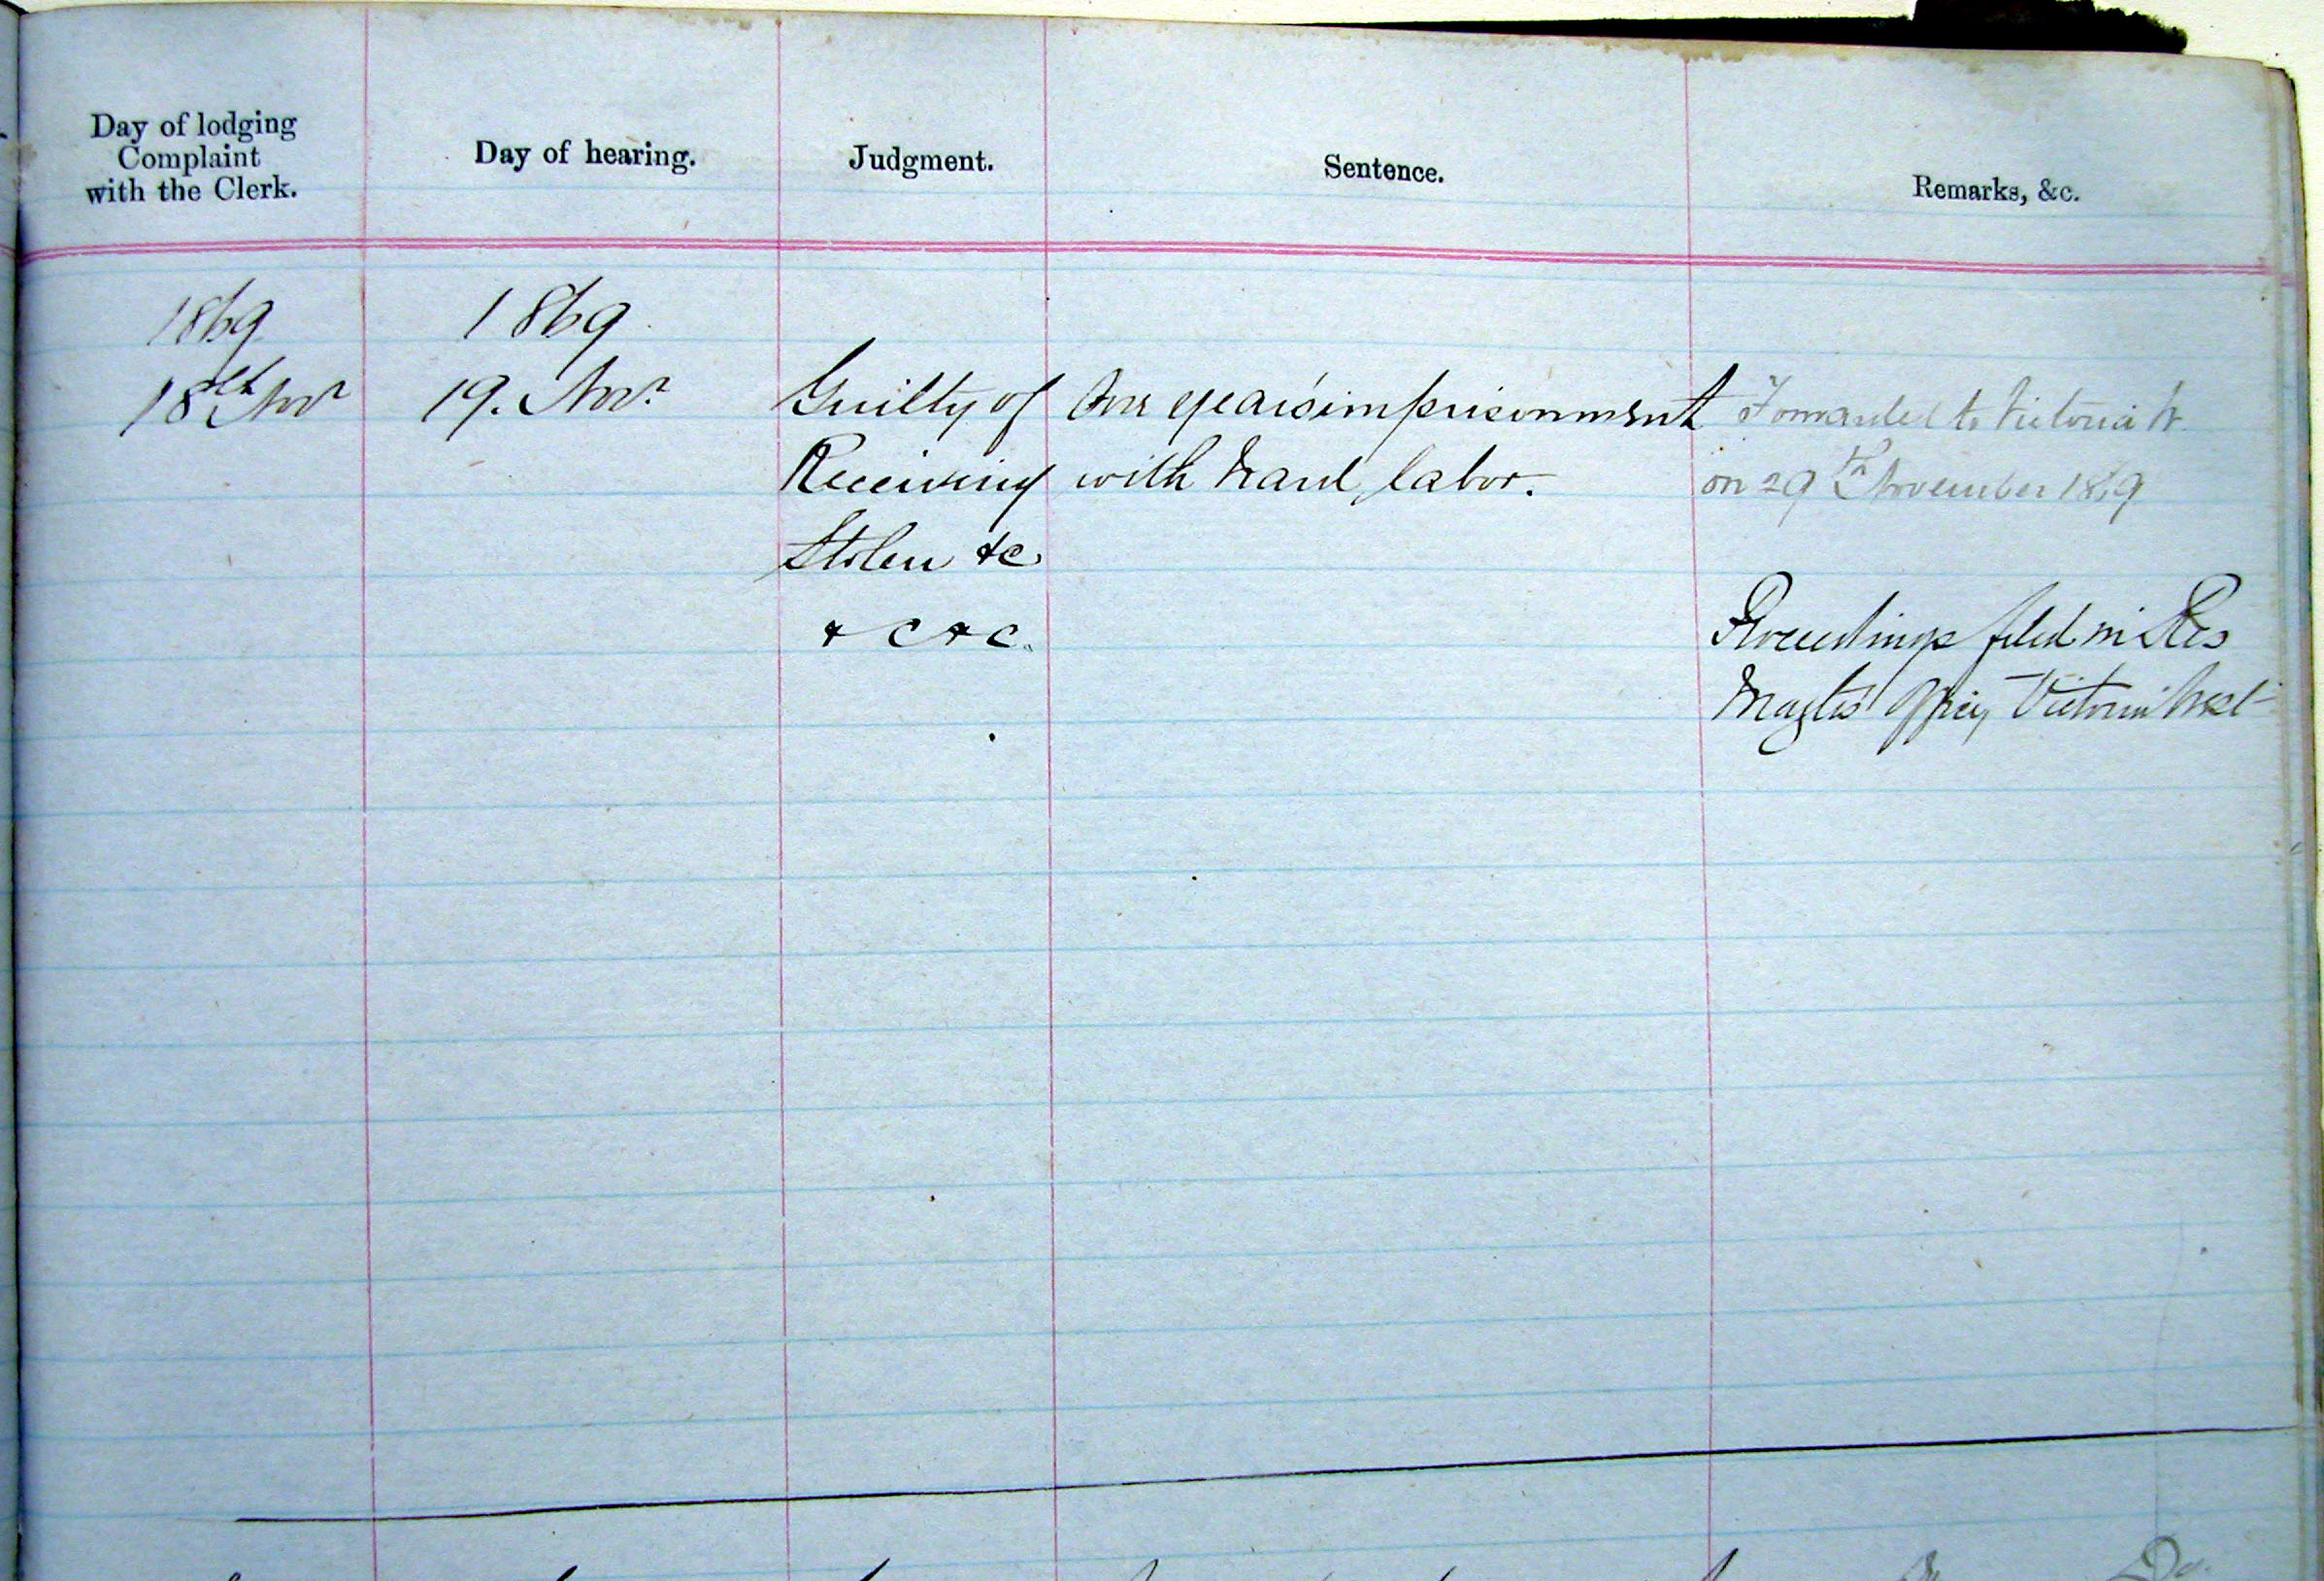 Day of lodging
Complaint
with the Clerk.
Day of hearing.
Judgment.
Sentence.
Remarks, &c.
1869
18th Novr
1869
19. Novr
Guilty of
Receiving
Stolen &c
&c &c.
One year's imprisonment
with hard labor.
Forwarded to Victoria W.
on 29th November 1869
Proceedings filed in Res
Magtes Office, Victoria West